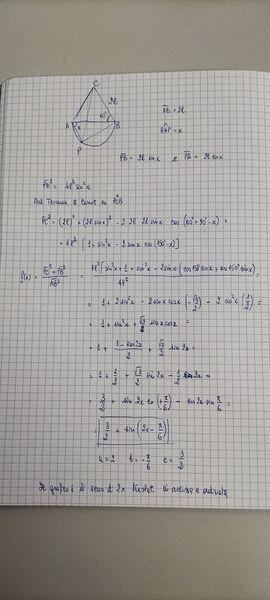 C
2l
60°
A
x
B
P
AB = 2l
BÂP = x
PB = 2l sin x e PA = 2l cos x
PB² = 4l² sin² x
Dal Teorema di Carnot su PĈB
PC² = (2l)² + (2l sin x)² - 2·2l·2l sin x cos (60° + 90° - x) =
= 4l² [1 + sin² x - 2 sin x cos (150° - x)]
f(x) = (PC² + PB²) / AB² = 4l² [sin² x + 1 + sin² x - 2 sin x (cos 150 cos x + sin 150° sin x)] / 4l² =
= 1 + 2 sin² x - 2 sin x cos x (-√3/2) - 2 sin² x (1/2) =
= 1 + sin² x + √3/2 sin x cos x =
= 1 + (1 - cos 2x)/2 + √3/2 sin 2x =
= 1 + 1/2 + √3/2 sin 2x - 1/2 cos 2x =
= 3/2 + sin 2x cos (π/6) - cos 2x sin π/6 =
= 3/2 + sin (2x - π/6)
a = 2 b = -π/6 c = 3/2
Il grafico è il seno di 2x traslat. in ascisse e ordinate